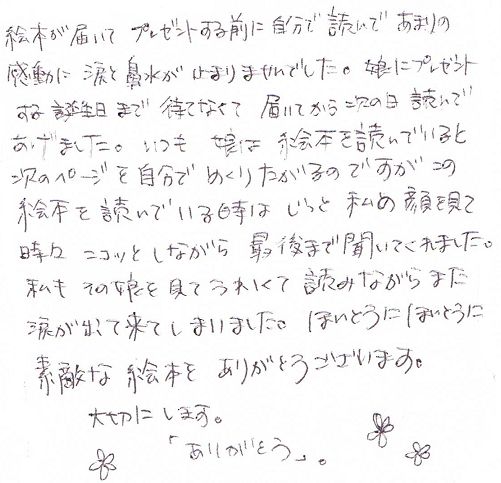 絵本が届いて プレゼントする前に自分で読いで あまりの
感動に 涙と鼻水が止まりませんでした。娘にプレゼント
する誕生日まで 待てなくて 届いてから次の日 読いで
あげました。いつも 娘は 絵本を読いでいると
次のページを自分で めくりたがるのですが この
絵本を読いでいる時は じっと 私の顔を見て
時々 ニコッとしながら 最後まで聞いてくれました。
私も その娘を見て うれしくて 読みながら また
涙が出て来てしまいました。ほいとうに ほいとうに
素敵な 絵本を ありがとうございます。
大切にします。
「ありがとう」。